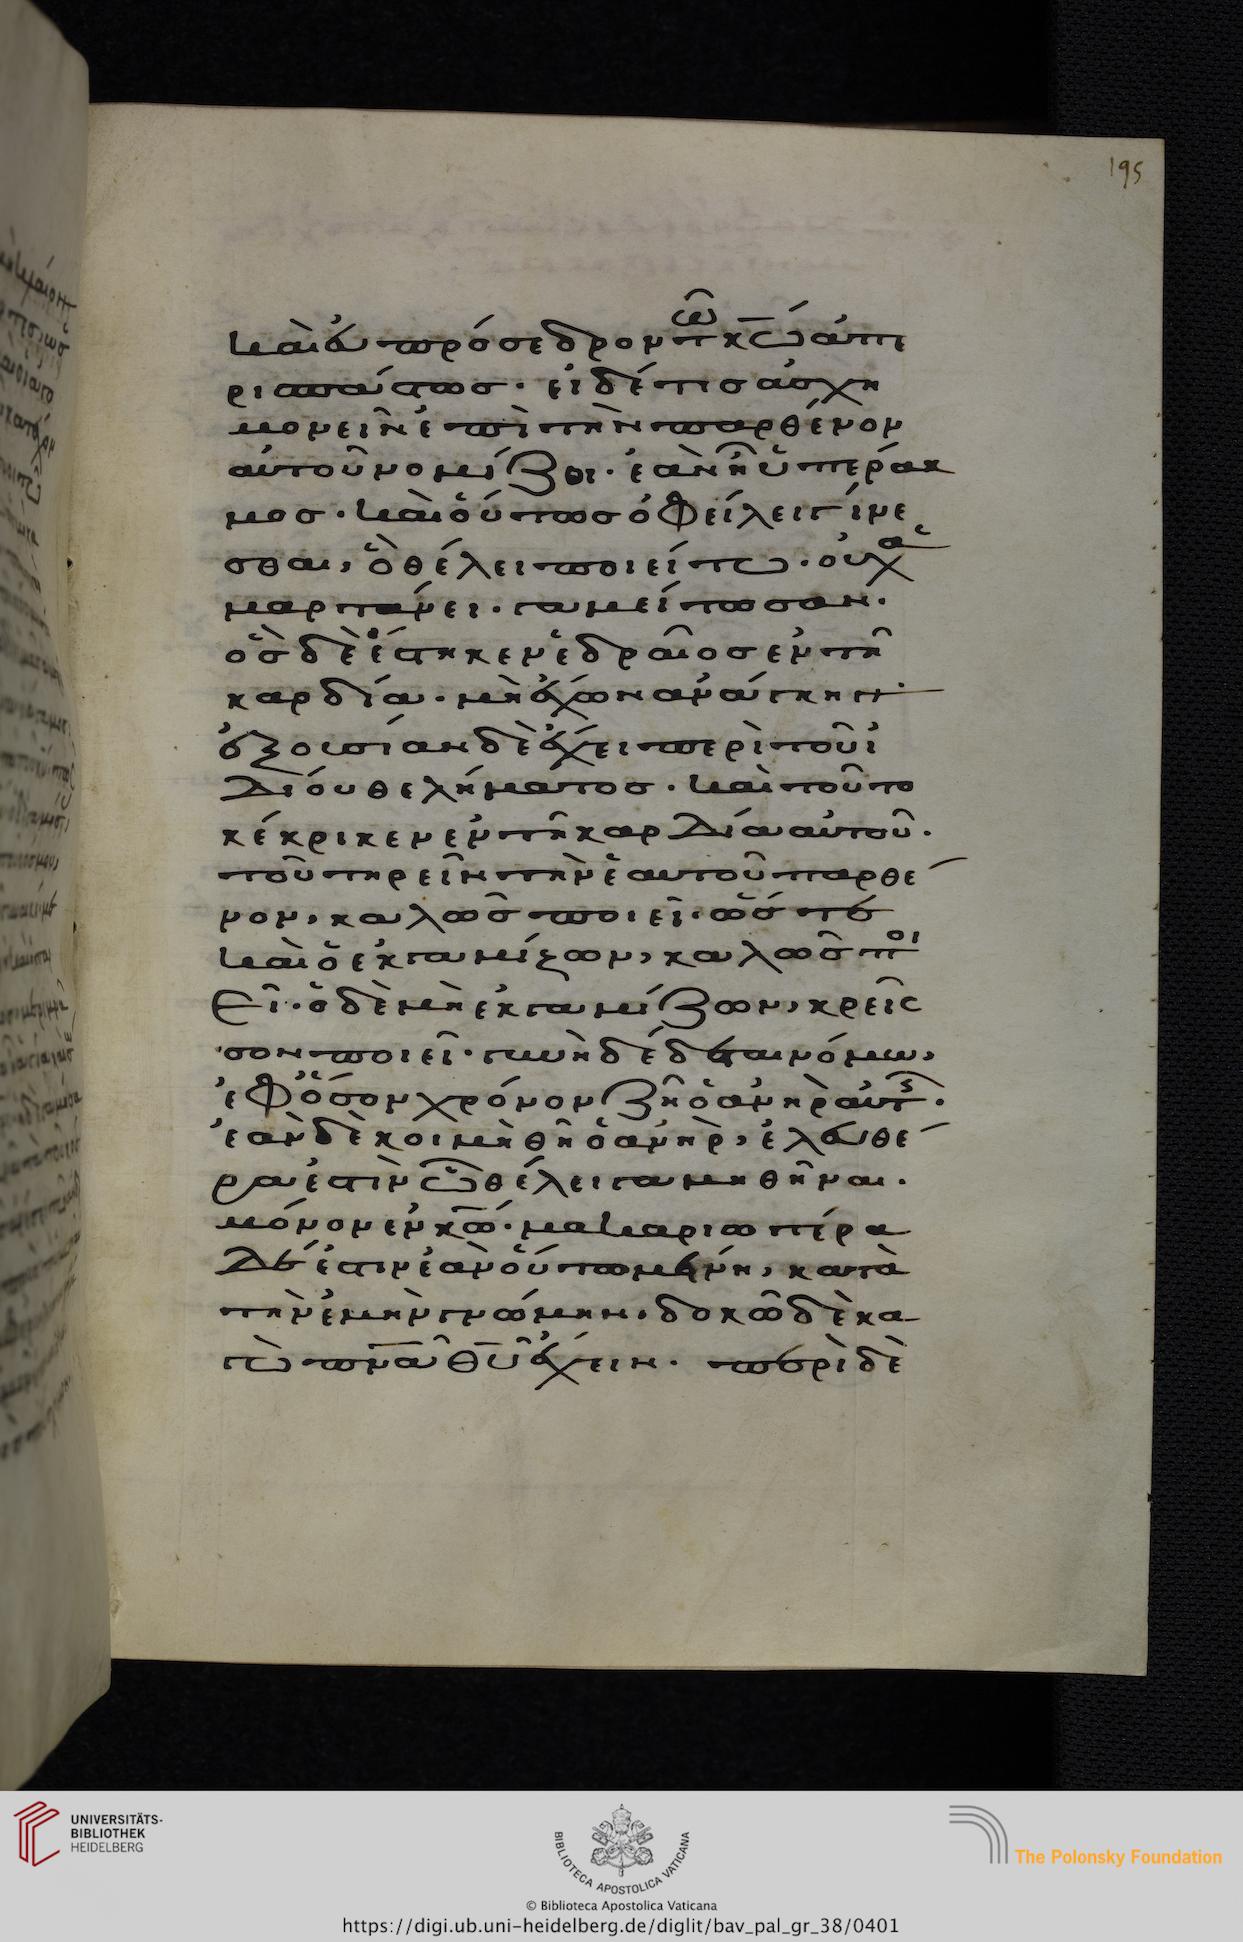 195
καὶ εὐπρόσεδρον τῶ κ̅ω̅ ἀπε
ρισπάστως· εἰ δέ τις ἀσχη
μονεῖν ἐπὶ τὴν παρθένον
αὐτοῦ νομίζει· ἐὰν ἦ ὑπέρακ
μος· καὶ οὕτως ὀφείλει γίνε
σθαι, ὃ θέλει ποιείτω· οὐχ ἁ
μαρτάνει· γαμείτωσαν·
ὃς δὲ ἕστηκεν ἑδραῖος ἐν τῆ
καρδία· μὴ ἔχων ἀνάγκην·
ἐξουσίαν δὲ ἔχει περὶ τοῦ ἰ
δίου θελήματος· καὶ τοῦτο
κέκρικεν ἐν τῆ καρδία αὐτοῦ·
τοῦ τηρεῖν τὴν ἑαυτοῦ παρθέ
νον, καλῶς ποιεῖ· ὥστε
καὶ ὁ ἐκγαμίζων, καλῶς ποι
εῖ· ὁ δὲ μὴ ἐκγαμίζων, κρεῖσ
σον ποιεῖ· γυνὴ δέδεται νόμω,
ἐφ' ὅσον χρόνον ζῆ ὁ ἀνὴρ αὐτῆς·
ἐὰν δὲ κοιμηθῆ ὁ ἀνὴρ, ἐλευθέ
ρα ἐστὶν ὧ θέλει γαμηθῆναι·
μόνον ἐν κ̅ω̅· μακαριωτέρα
δέ ἐστιν ἐὰν οὕτω μείνη, κατὰ
τὴν ἐμὴν γνώμην· δοκῶ δὲ κα
γὼ π̅ν̅α̅ θ̅υ̅ ἔχειν· περὶ δὲ
UNIVERSITÄTS-
BIBLIOTHEK
HEIDELBERG
BIBLIOTECA APOSTOLICA VATICANA
The Polonsky Foundation
© Biblioteca Apostolica Vaticana
https://digi.ub.uni-heidelberg.de/diglit/bav_pal_gr_38/0401